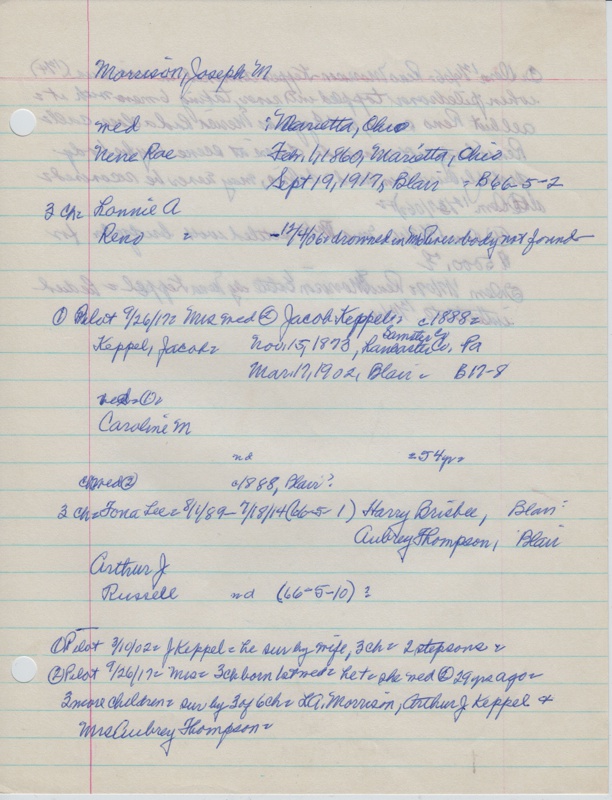 Morrison, Joseph M
med : Marietta, Ohio
Nera Rae Feb. 1, 1860, Marietta, Ohio
Sept 19, 1917, Blair = B66-5-2
3 ch= Lonnie A
Reno = -12/4/06= drowned in Mo River= body not found=
① Pilot 9/26/17= Mrs med ② Jacob Keppel= c1888=
Keppel, Jacob= Nov. 15, 1873, Lancaster Co, Pa
Mar. 17, 1902, Blair= B17-8
med= ①=
Caroline M
nd =54 yr=
med ② c1888, Blair?
3 ch= Fona Lee= 8/1/89- 7/18/14 (66-5-1) Harry Brisbee, Blair?
Aubrey Thompson, Blair
Arthur J
Russell nd (66-5-10)?
① Pilot 3/10/02= J Keppel= he sur by wife, 3 ch= 2 stepsons=
② Pilot 9/26/17= Mrs= 3 ch born 1st med= = she med ② 29 yrs ago=
3 more children= sur by 3 of 6 ch= L.A. Morrison, Arthur J Keppel &
Mrs Aubrey Thompson=